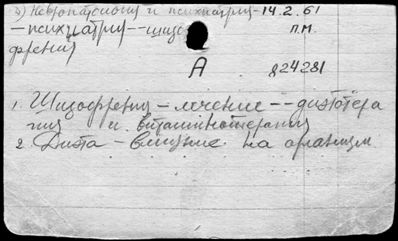 д) Невропатологии и психиатрия - 14.2.61
- психиатрия -- шизо П.М.
френия
А 824281
1. Шизофрения - лечение -- диэтотера
пия и витаминотерапия
2. Диэта - влияние на организм